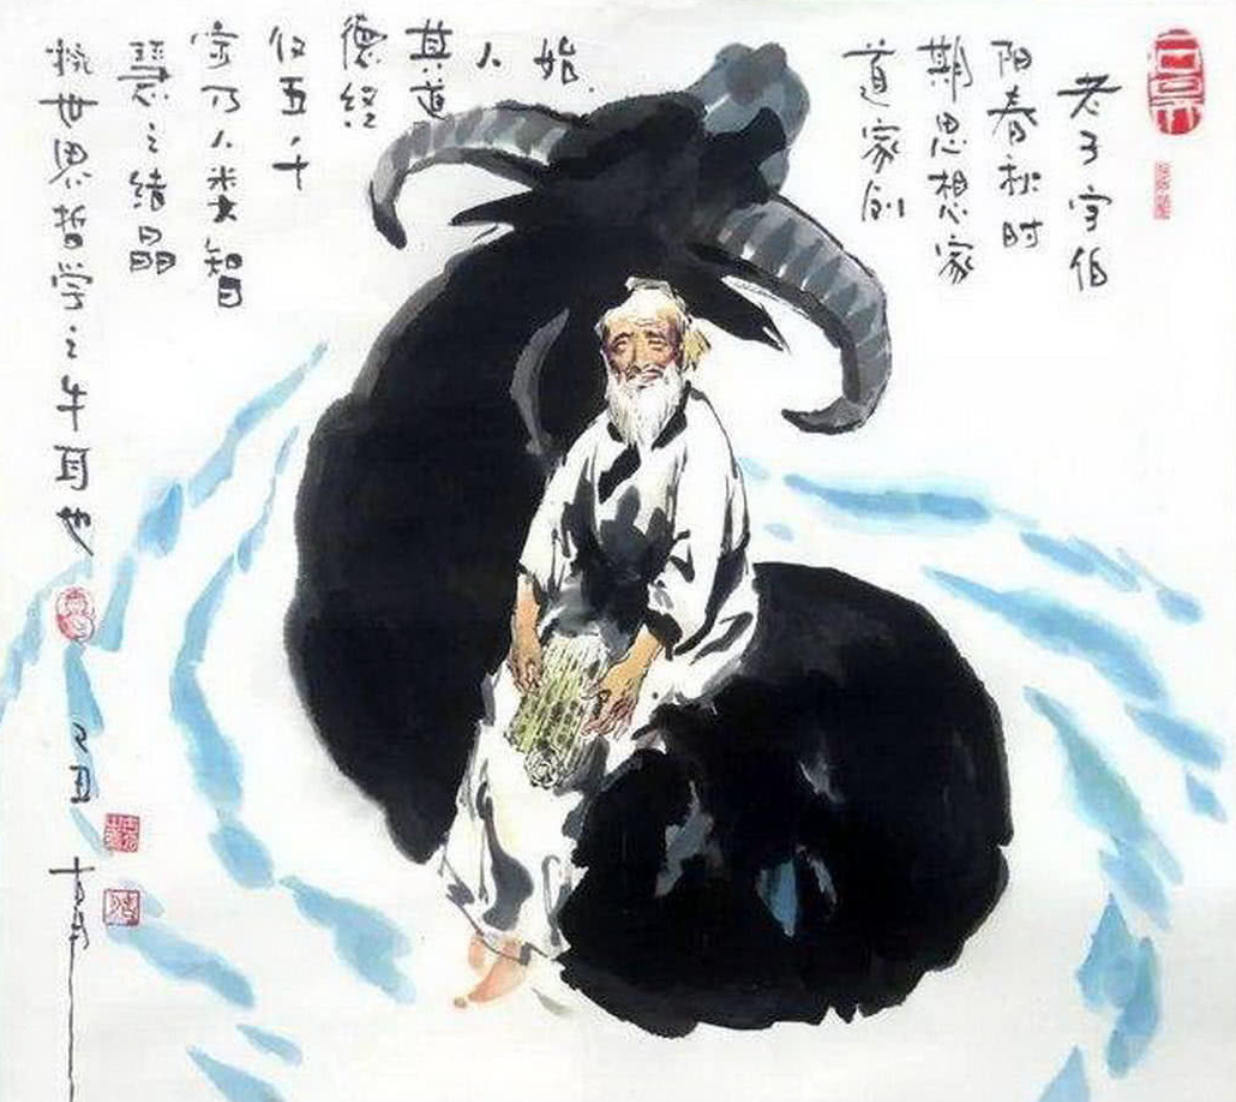 老子字伯
阳春秋时
期思想家
道家创
始
人
其道
德经
仅五千
字乃人类智
慧之结晶
执世界哲学之牛耳也
己丑